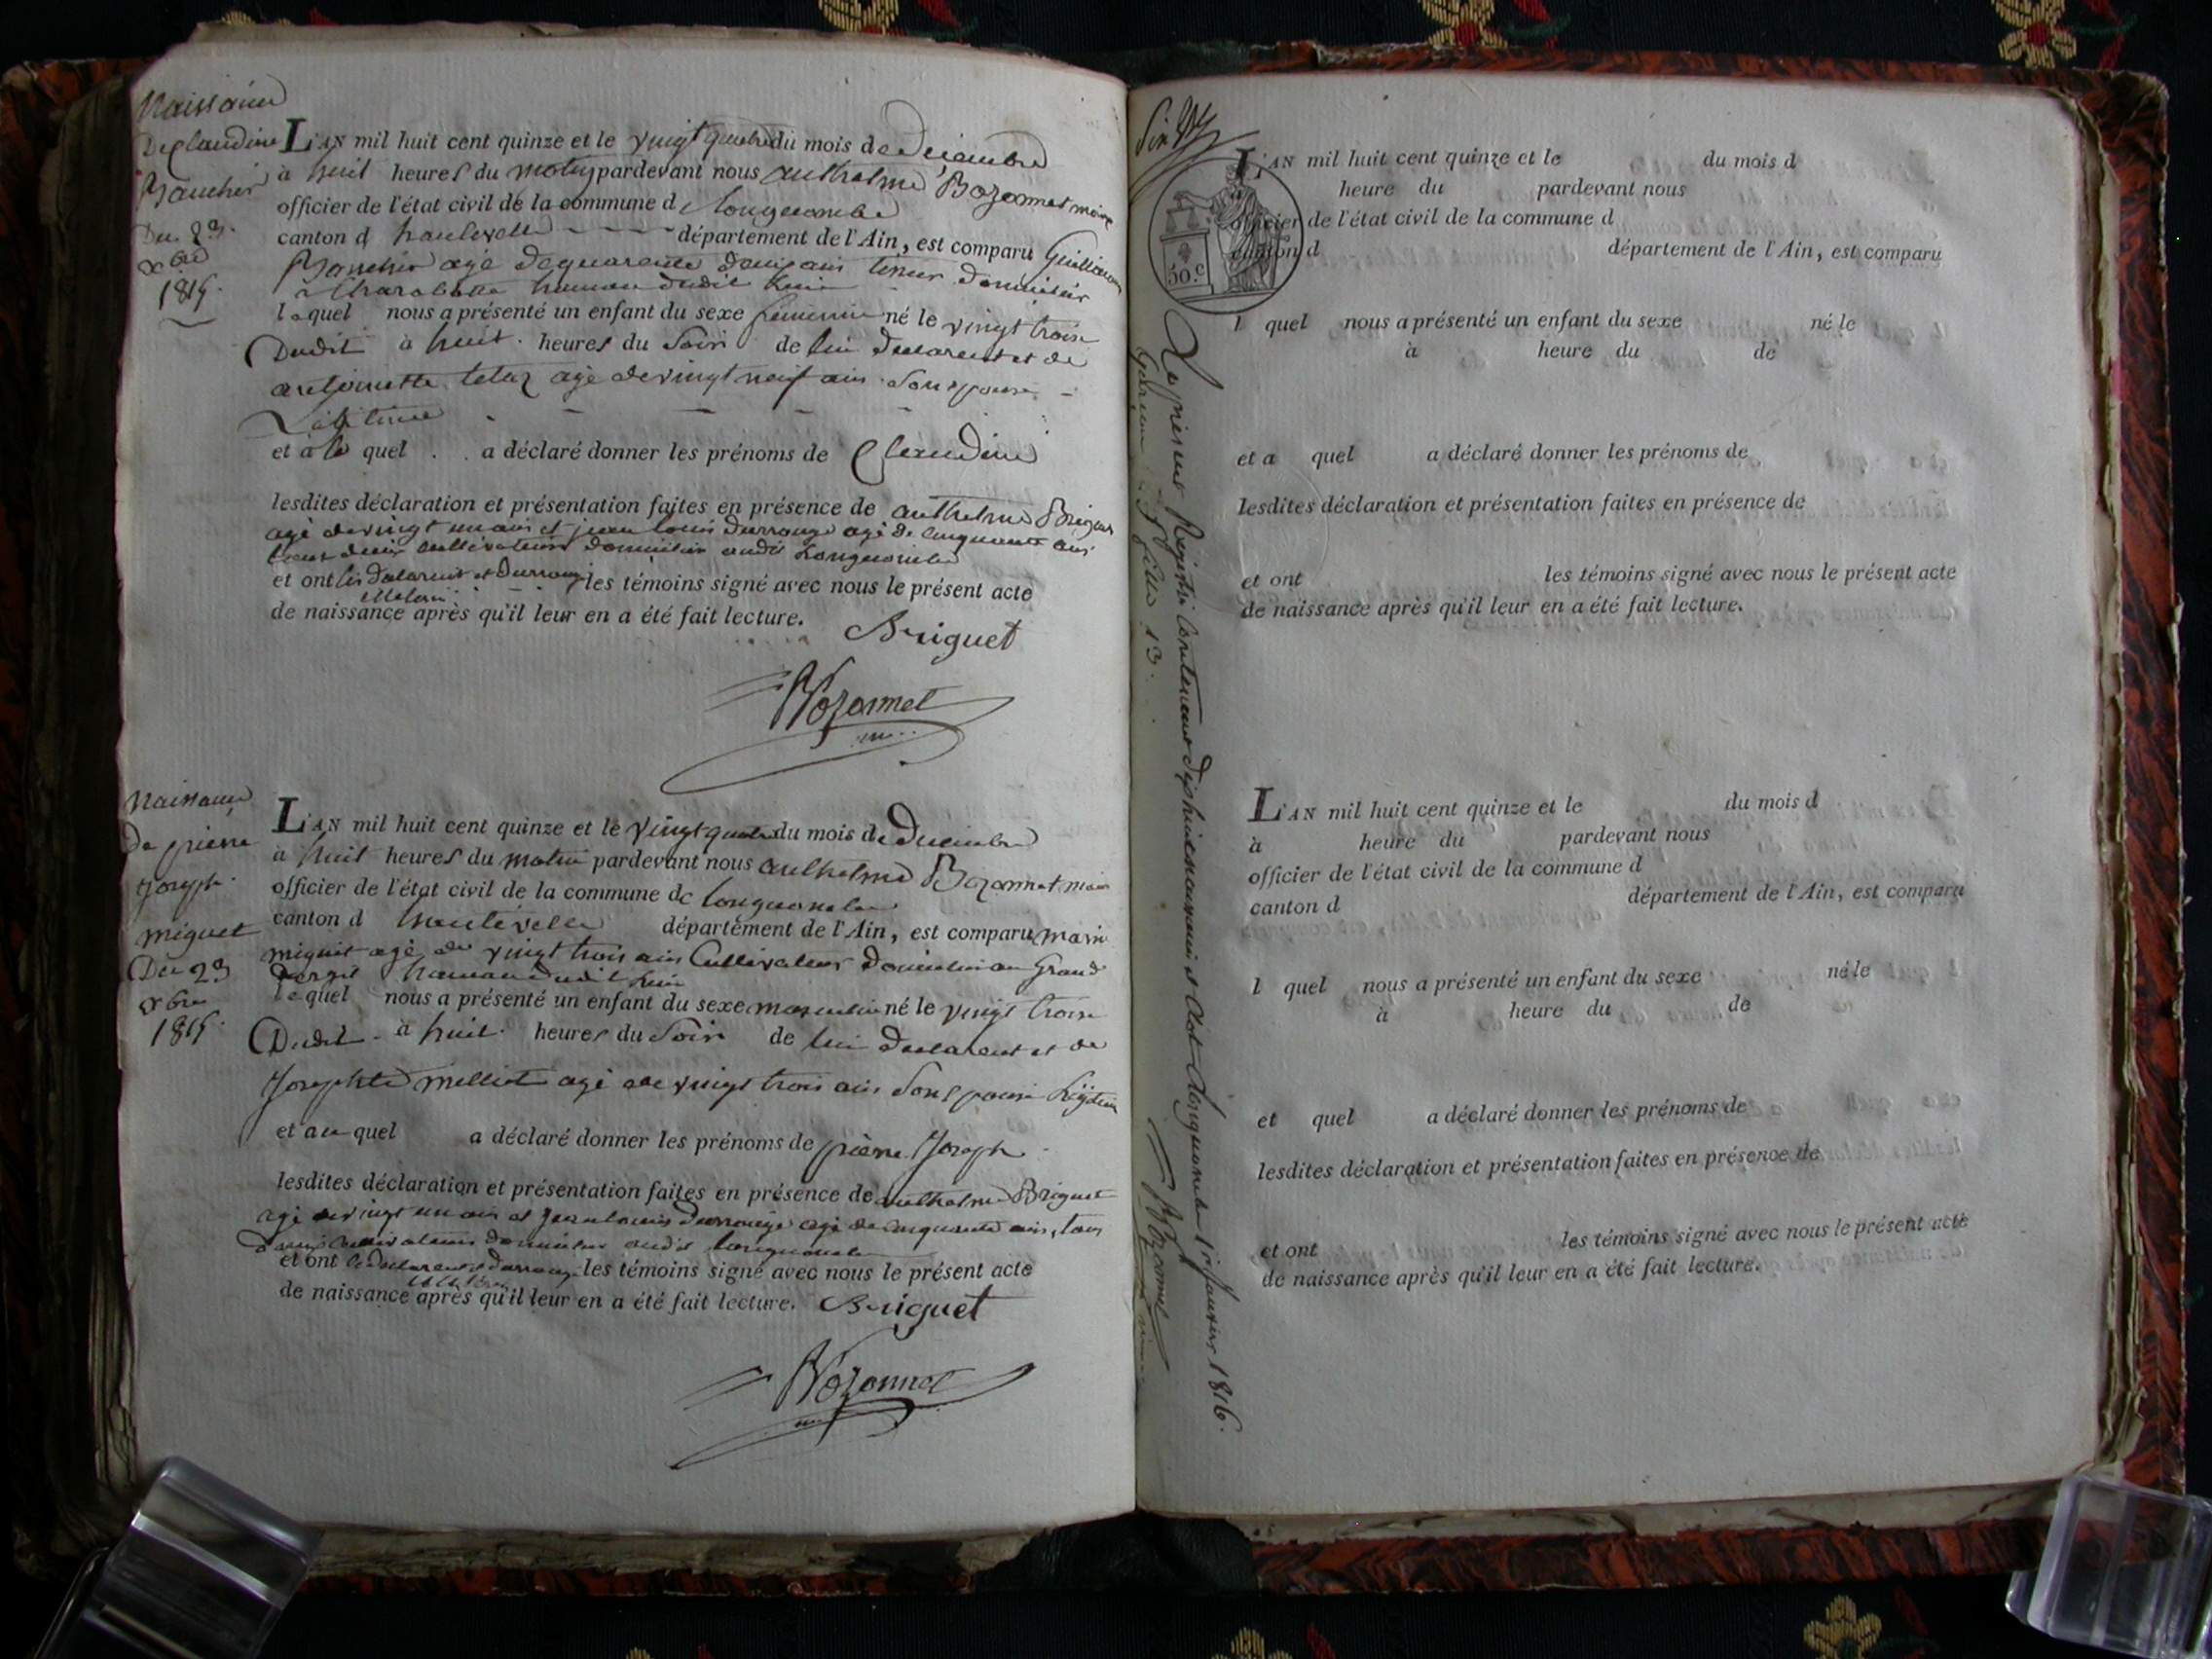 Naissance
De Claudine
Du 23
xbre
1815
L'AN mil huit cent quinze et le vingt quatre du mois de Decembre
à huit heures du matin pardevant nous anthelme Bozonnet maire
officier de l'état civil de la commune de longecombe
canton d hauteville département de l'Ain, est comparu Guillaume
agé de quarante deux ans domicilié
à Charabotte hameau dudit lieu
lequel nous a présenté un enfant du sexe feminin né le vingt trois
Dudit à huit heures du Soir de lui declarent et de
antoinette agé de vingt neuf ans Son epouse
Legitime
et a la quel a déclaré donner les prénoms de Claudine
lesdites déclaration et présentation faites en présence de anthelme Briguet
agé de vingt un ans et jean louis durrouge agé de cinquante ans
tous deux cultivateurs domiciliés audit Longecombe
et ont les declarent et Durrouge les témoins signé avec nous le présent acte
de naissance après qu'il leur en a été fait lecture.
Briguet
Bozonnet
Naissance
de pierre
Joseph
miguet
Du 23
xbre
1815
L'AN mil huit cent quinze et le vingt quatre du mois de Decembre
à huit heures du matin pardevant nous anthelme Bozonnet maire
officier de l'état civil de la commune de longecombe
canton d hauteville département de l'Ain, est comparu marie
miguet agé de vingt trois ans Cultivateur Domicilié au Grand
hameau dudit lieu
lequel nous a présenté un enfant du sexe masculin né le vingt trois
Dudit à huit heures du Soir de lui declarent et de
Josephte milliet agé de vingt trois ans Son epouse Légitime
et au quel a déclaré donner les prénoms de pierre Joseph
lesdites déclaration et présentation faites en présence de anthelme Briguet
agé de vingt un ans et jean louis Durrouge agé de cinquante ans, tous
deux cultivateurs domiciliés audit longecombe
et ont le declarent et durrouge les témoins signé avec nous le présent acte
de naissance après qu'il leur en a été fait lecture. Briguet
Bozonnet
L'AN mil huit cent quinze et le du mois d
heure du pardevant nous
officier de l'état civil de la commune d
canton d département de l'Ain, est comparu
50.c
l quel nous a présenté un enfant du sexe né le
à heure du de
et a quel a déclaré donner les prénoms de
lesdites déclaration et présentation faites en présence de
et ont les témoins signé avec nous le présent acte
de naissance après qu'il leur en a été fait lecture.
L'AN mil huit cent quinze et le du mois d
à heure du pardevant nous
officier de l'état civil de la commune d
canton d département de l'Ain, est comparu
l quel nous a présenté un enfant du sexe né le
à heure du de
et quel a déclaré donner les prénoms de
lesdites déclaration et présentation faites en présence de
et ont les témoins signé avec nous le présent acte
de naissance après qu'il leur en a été fait lecture.
Le present Registre Contenant naissances et Clos longecombe janvier 1816.
filles 13.
Bozonnet